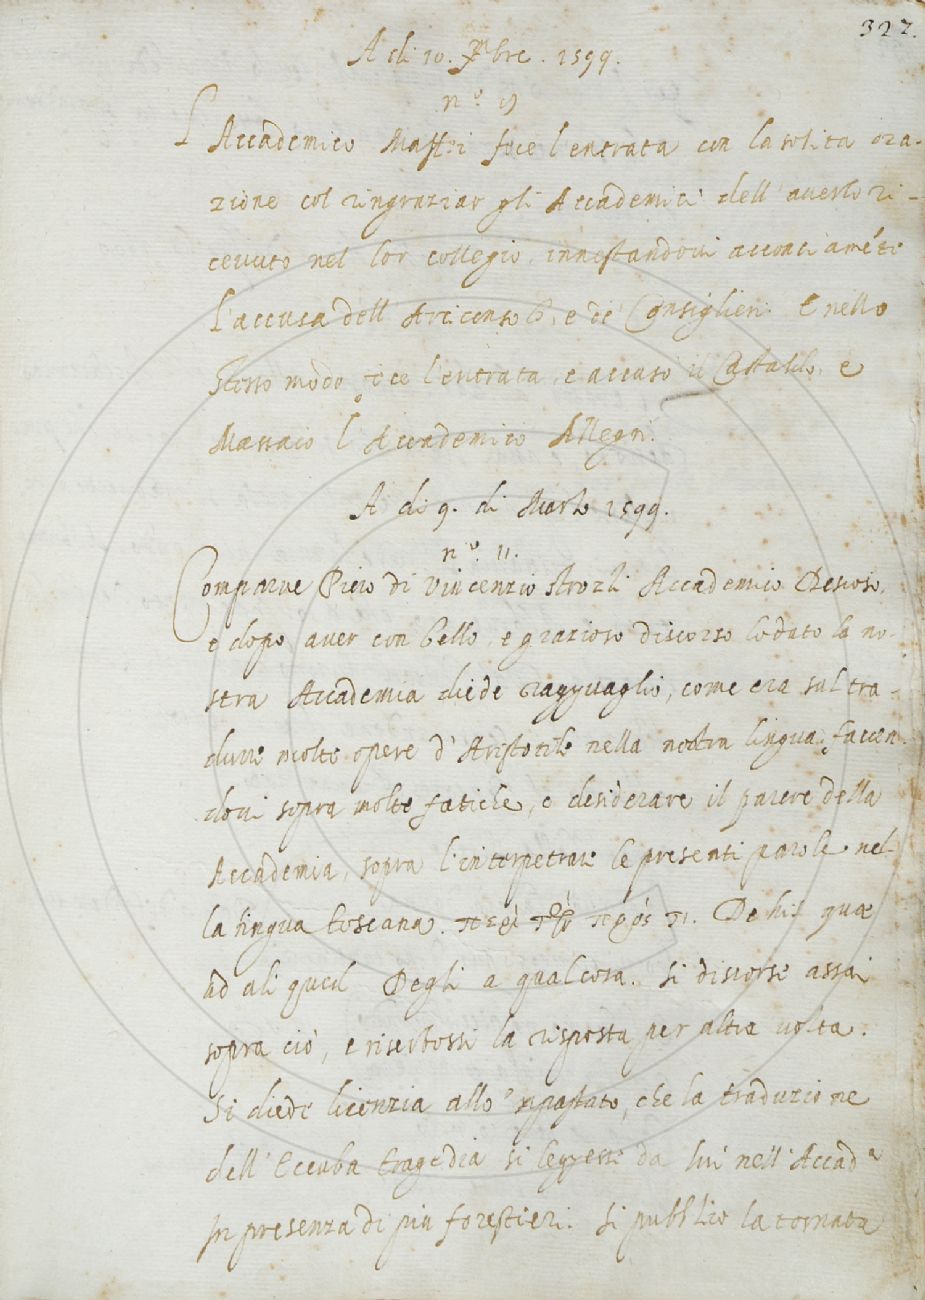 327.
A dì 10. Xbre. 1599.
n.° 9
L'Accademico Maffei fece l'entrata con la solita ora-
zione col ringraziar gli Accademici dell'averlo ri-
cevuto nel lor collegio, innestandovi acconciamẽte
l'accusa dell'Arciconsolo, e de' Consiglieri. E nello
stesso modo fece l'entrata, e accusò il Castaldo, e
Massaio l'Accademico Allegri.
A dì 9. di Marzo 1599.
n.° 11.
Comparve Piero di Vincenzio Strozzi Accademico Desioso,
e dopo aver con bello, e grazioso discorso lodato la no-
stra Accademia diede ragguaglio, come era sul tra-
durre molte opere d'Aristotile nella nostra lingua, faccen-
dovi sopra molte fatiche, e desiderare il parere della
Accademia, sopra l'interpetrare le presenti parole nel-
la lingua toscana. περὶ τῶν πρός τι. De his quæ
ad aliquid Degli a qualcosa. Si discorse assai
sopra ciò, e riserbossi la risposta per altra volta.
Si diede licenzia allo 'mpastato, che la traduzione
dell'Eccuba tragedia si leggessi da lui nell'Accad.ª
in presenza di più forestieri. Si pubblicò la tornata